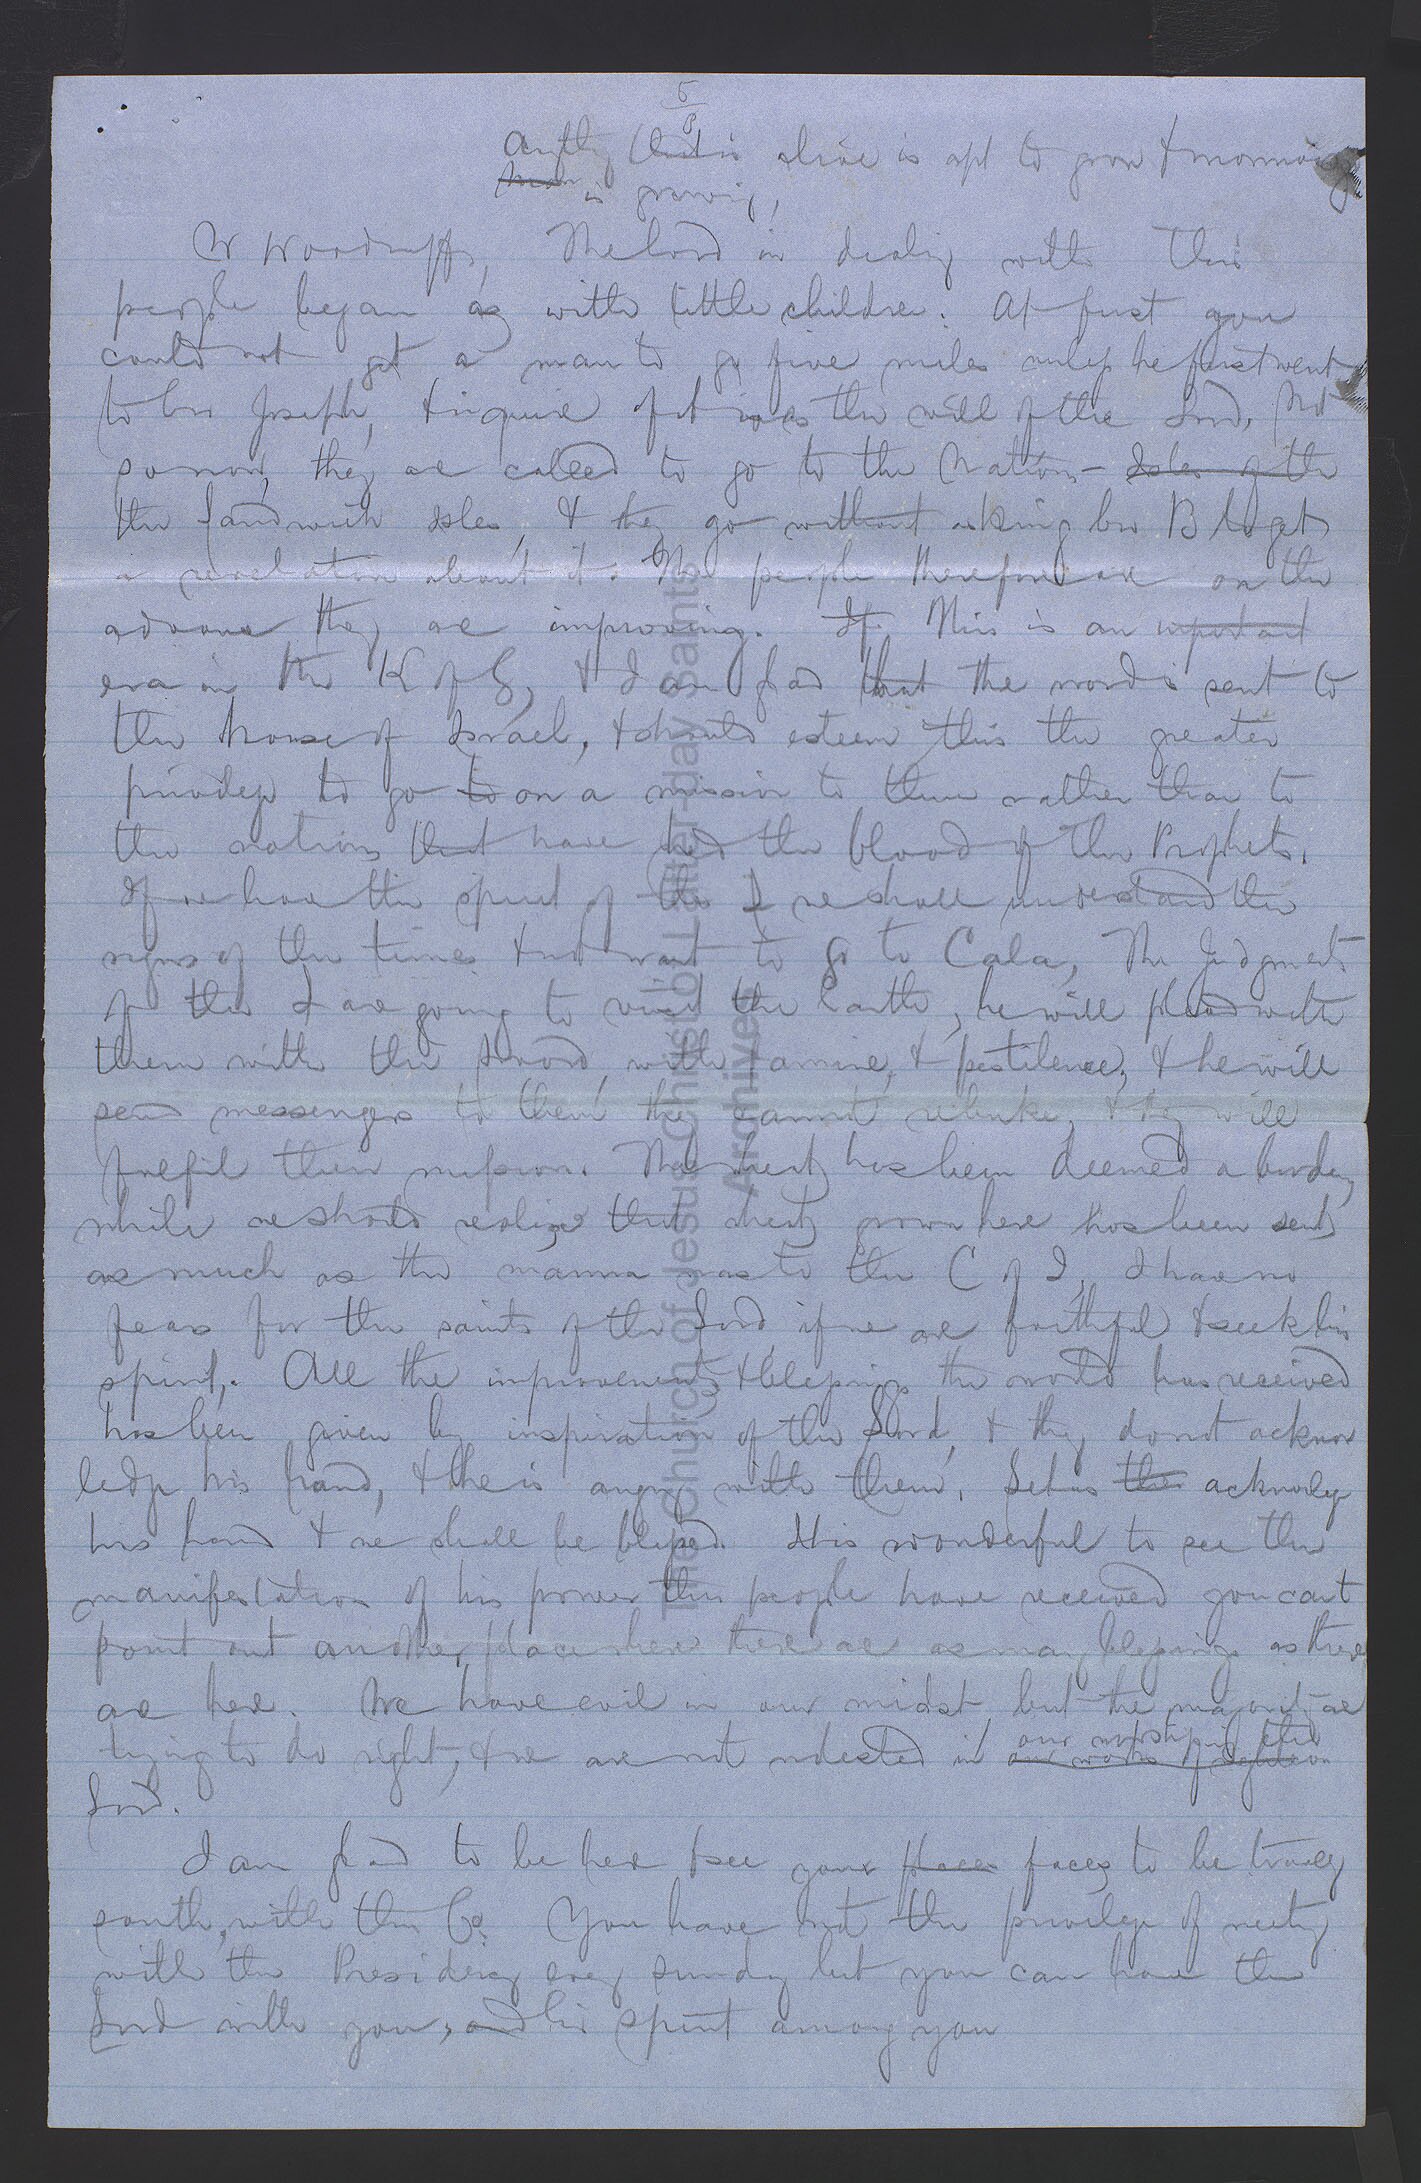 5
3
Anythg that is alive is apt to grow & mormonism
is growig,
W Woodruff, The Lord in dealig with this
people began as with little children. At first you
could not get a man to go five miles unless he first went
to bro Joseph, & inquire if it was the will of the Lord, Not
so now, they are called to go to the Nations - Isles of the
the Sandwich Isles, & they go without asking bro B to get
a revelation about it. The people therefore are on the
advance they are improving. If This is an important
era in the K of G, & I am glad that the word is sent to
the house of Israel, & should esteem this the greater
priviledge to go to on a mission to them rather than to
the nations that have shed the blood of the Prophets.
If we have the spirit of the L we shall understand the
signs of the times & not want to go to Cala, The Judgments
of the L are going to visit the Earth, he will plead with
them with the sword, with famine, & pestilence, & he will
send messengers to them they cannot rebuke, & they will
fulfil their mission. The wheat has been deemed a burden,
while we should realize that wheat grown here has been sent
as much as the manna was to the C of I, I have no
fears for the saints of the Lord if we are faithful & seek his
spirit. All the improvements & blessings the world has received
has been given by inspiration of the Lord, & they do not acknow
ledge his hand, & he is angry with them, Let us the acknowledge
his hand & we shall be blessed. It is wonderful to see the
manifestation of his power this people have received you cant
point out another place where there are as many blessings as there
are here. We have evil in our midst, but the majority are
trying to do right, & we are not molested in our worship of the
our works of righteous
Lord.
I am glad to be here & see your places faces, to be travelg
south, with this Co. You have not the privilege of meetg
with the Presidency every sunday but you can have the
Lord with you, and his spirit among you
The Church of Jesus Christ of Latter-day Saints
Archives